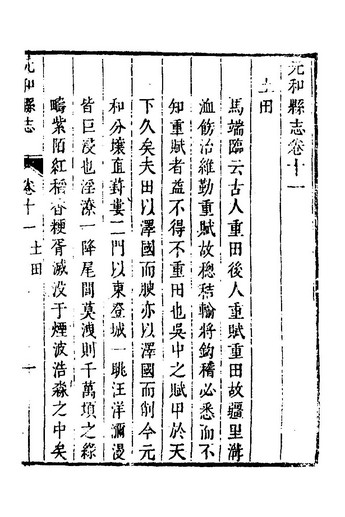 元和縣志卷十一
土田
馬端臨云古人重田後人重賦重田故疆里溝
洫飭治維勤重賦故總秸輸將鈎稽必悉而不
知重賦者益不得不重田也吳中之賦甲於天
下久矣夫田以澤國而腴亦以澤國而削今元
和分壤直葑婁二門以東登城一眺汪洋瀰漫
皆巨浸也淫潦一降尾閭莫洩則千萬頃之綠
疇紫陌紅稻香粳胥滅没于煙波浩淼之中矣
元和縣志
卷十一 土田
一